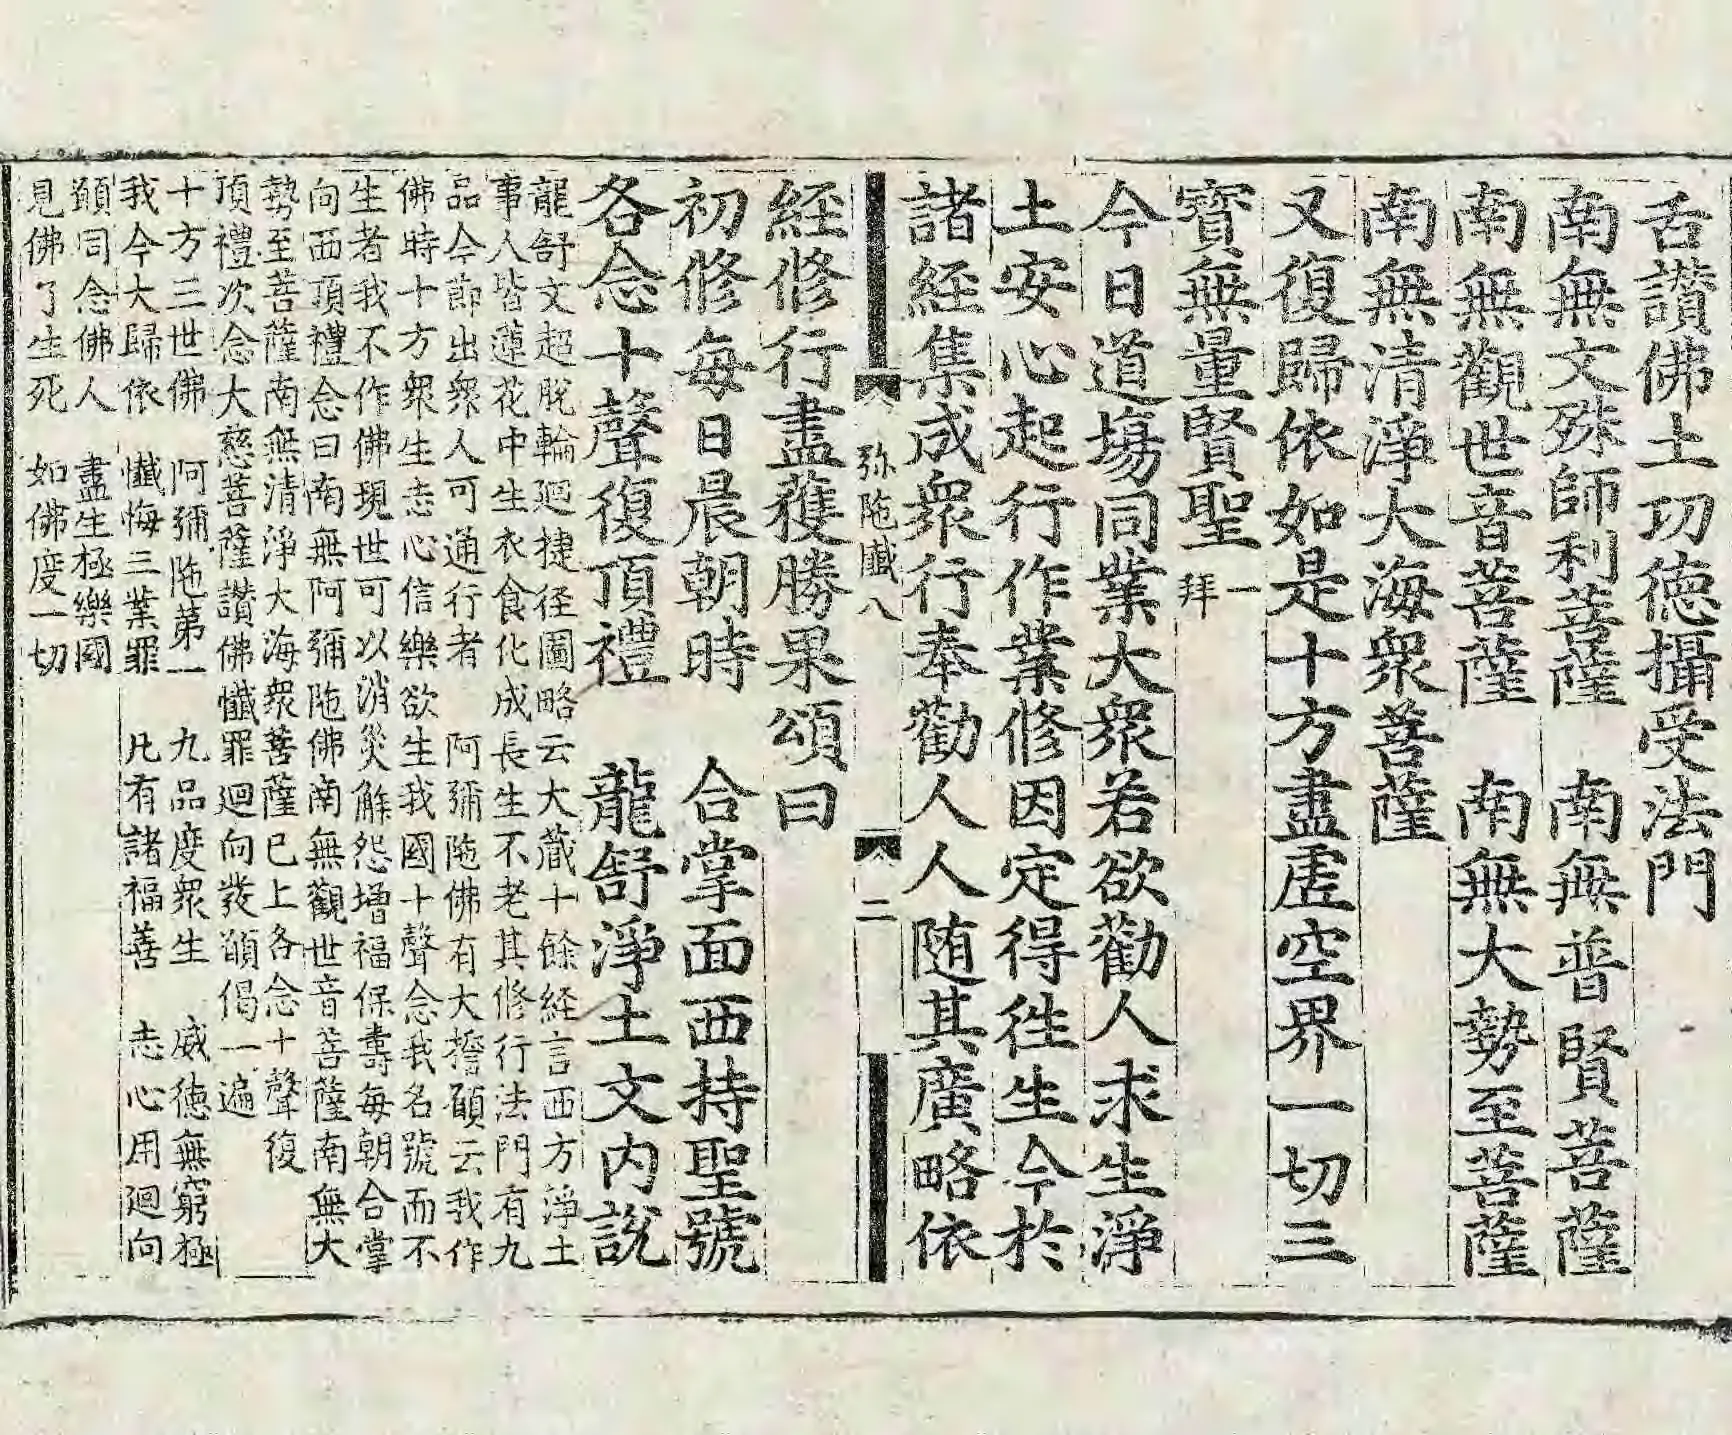 舌讃佛土功德攝受法門
南無文殊師利菩薩　南無普賢菩薩
南無觀世音菩薩　南無大勢至菩薩
南無清淨大海衆菩薩
又復歸依如是十方盡虛空界一切三
寳無量賢聖 一拜
今日道塲同業大衆若欲勸人求生淨
土安心起行作業修因定得徃生今於
諸經集成衆行奉勸人人随其廣略依
弥陁懺八　二
經修行盡獲勝果頌曰
初修每日晨朝時　合掌面西持聖號
各念十聲復頂禮　龍舒淨土文内說
龍舒文超脫輪廻捷径圖略云大蔵十餘経言西方淨土
事人皆蓮花中生衣食化成長生不老其修行法門有九
品今節出衆人可通行者　阿彌陁佛有大擔願云我作
佛時十方衆生志心信樂欲生我國十聲念我名號而不
生者我不作佛現世可以消災解怨增福保壽每朝合掌
向西頂禮念曰南無阿彌陁佛南無觀世音菩薩南無大
勢至菩薩南無清淨大海衆菩薩已上各念十聲復
頂禮次念大慈菩薩讃佛懺罪廻向發願偈一遍
十方三世佛　阿彌陁第一　九品度衆生　威德無窮極
我今大歸依　懺悔三業罪　凡有諸福善　志心用廻向
願同念佛人　盡生極樂國
見佛了生死　如佛度一切